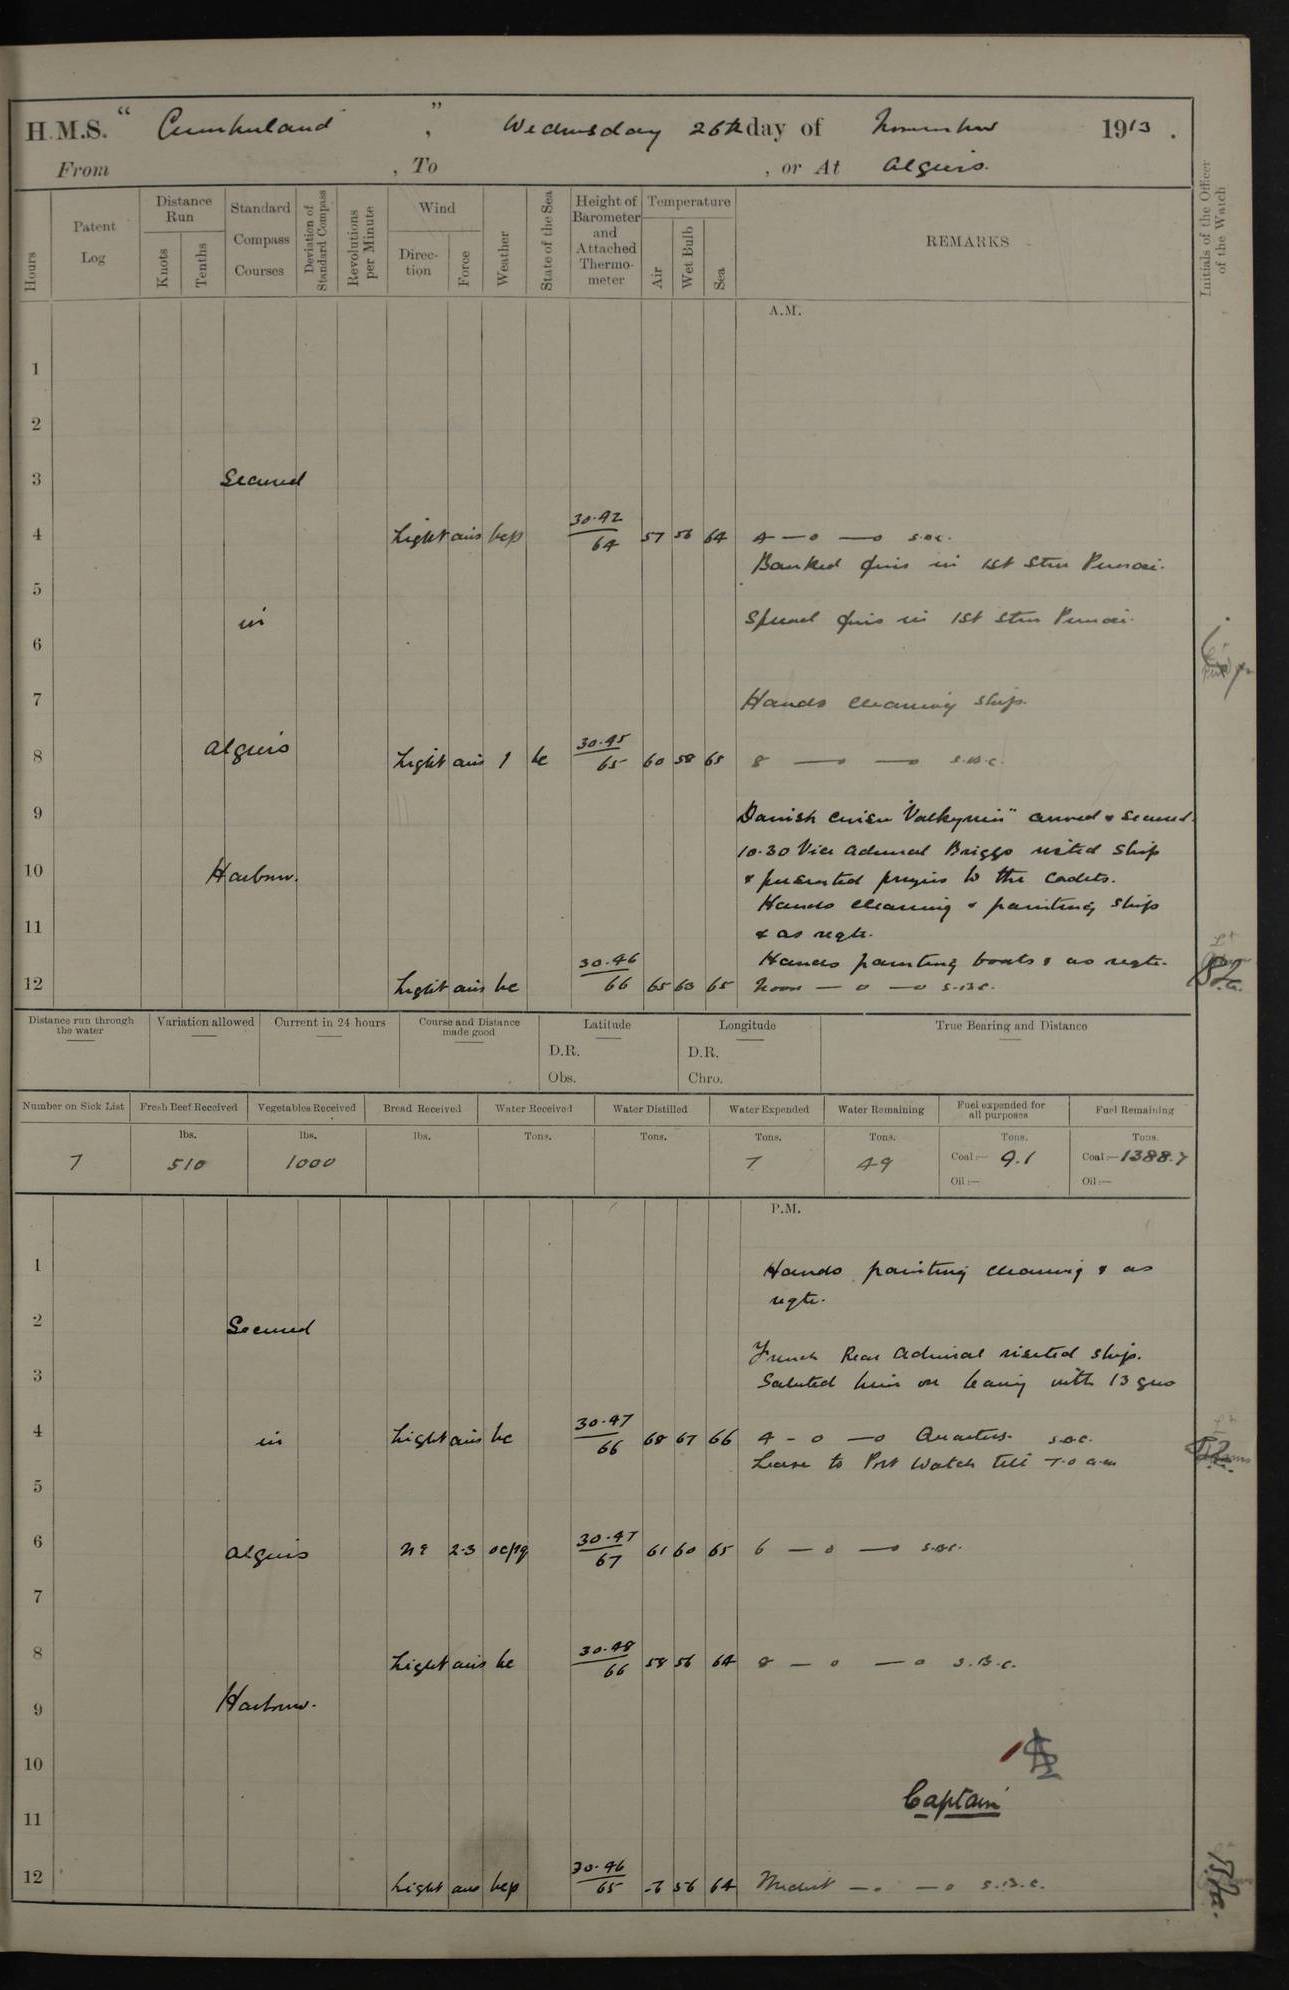 H.M.S. " Cumberland " , Wednesday 26th day of November 1913 .
From , To , or At Algiers.
Hours
Patent Log
Distance Run
Knots
Tenths
Standard Compass Courses
Deviation of Standard Compass
Revolutions per Minute
Wind
Direction
Force
Weather
State of the Sea
Height of Barometer and Attached Thermometer
Temperature
Air
Wet Bulb
Sea
REMARKS
Initials of the Officer of the Watch
A.M.
1
2
3 Secured
4 Light airs bcp 30.42 64 57 56 64 4 — o — o S.B.C.
Banked fires in 1st Stm Pinnace.
5
in Spread fires in 1st Stm Pinnace.
6
7 Hands cleaning ship.
Algiers
8 Light airs 1 bc 30.45 65 60 58 65 8 — o — o S.B.C.
9 Danish Cruiser "Valkyrien" arrived & secured.
10.30 Vice Admiral Briggs visited ship
10 Harbour. & presented prizes to the Cadets.
Hands cleaning & painting ship
11 & as reqte.
Hands painting boats & as reqte.
12 Light airs bc 30.46 66 65 63 65 Noon — o — o S.B.C.
Distance run through the water
Variation allowed
Current in 24 hours
Course and Distance made good
Latitude
D.R.
Obs.
Longitude
D.R.
Chro.
True Bearing and Distance
Number on Sick List
Fresh Beef Received
Vegetables Received
Bread Received
Water Received
Water Distilled
Water Expended
Water Remaining
Fuel expended for all purposes
Fuel Remaining
lbs. lbs. lbs. Tons. Tons. Tons. Tons. Tons. Tons.
7 510 1000 7 49 Coal:— 9.1 Coal:— 1388.7
Oil:— Oil:—
P.M.
1 Hands painting cleaning & as
reqte.
2 Secured
French Rear Admiral visited ship.
3 Saluted him on leaving with 13 guns
4 in Light airs bc 30.47 66 68 67 66 4 - o — o Quarters. S.B.C.
Leave to Port Watch till 7.0 a.m
5
6 Algiers NE 2-3 ocpq 30.47 67 61 60 65 6 — o — o S.B.C.
7
8 Light airs bc 30.48 66 58 56 64 8 — o — o S.B.C.
9 Harbour.
10
Captain
11
12 Light airs bcp 30.46 65 56 64 Midnt — o — o S.B.C.